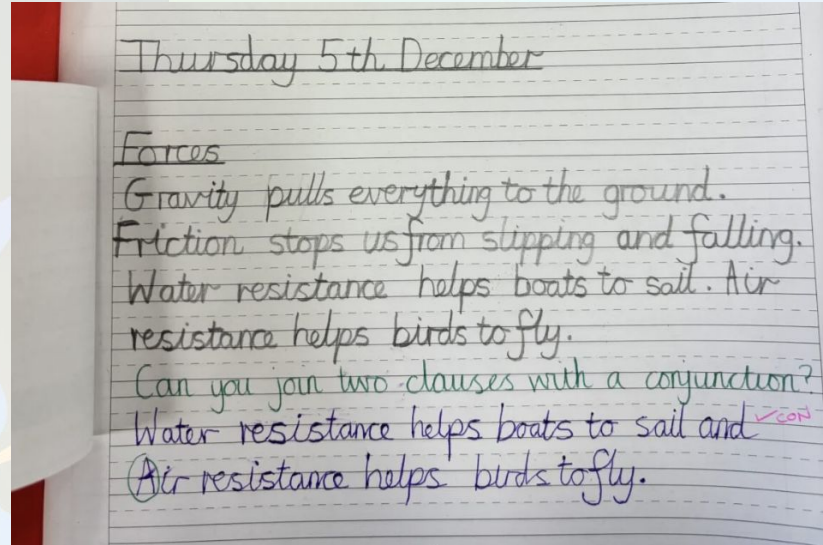 Thursday 5th December
Forces
Gravity pulls everything to the ground.
Friction stops us from slipping and falling.
Water resistance helps boats to sail. Air
resistance helps birds to fly.
Can you join two clauses with a conjunction?
Water resistance helps boats to sail and ✓CON
Air resistance helps birds to fly.